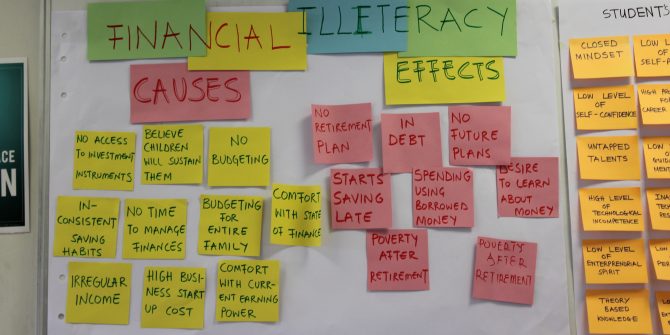 FINANCIAL ILLITERACY
CAUSES
EFFECTS
NO ACCESS
TO INVESTMENT
INSTRUMENTS
BELIEVE
CHILDREN
WILL SUSTAIN
THEM
NO
BUDGETING
IN-
CONSISTENT
SAVING
HABITS
NO TIME
TO MANAGE
FINANCES
BUDGETING
FOR
ENTIRE
FAMILY
COMFORT
WITH STATE
OF FINANCE
IRREGULAR
INCOME
HIGH BUSI-
NESS START
UP COST
COMFORT
WITH CURR-
ENT EARNING
POWER
NO
RETIREMENT
PLAN
IN
DEBT
NO
FUTURE
PLANS
STARTS
SAVING
LATE
SPENDING
USING
BORROWED
MONEY
DESIRE
TO LEARN
ABOUT
MONEY
POVERTY
AFTER
RETIREMENT
POVERTY
AFTER
RETIREMENT
STUDENT'S
CLOSED
MINDSET
LOW LEVEL
OF
SELF-CONFIDENCE
UNTAPPED
TALENTS
HIGH LEVEL
OF
TECHNOLOGICAL
INCOMPETENCE
LOW LEVEL
OF
ENTERPRENDRIAL
SPIRIT
THEORY
BASED
KNOWLEDGE